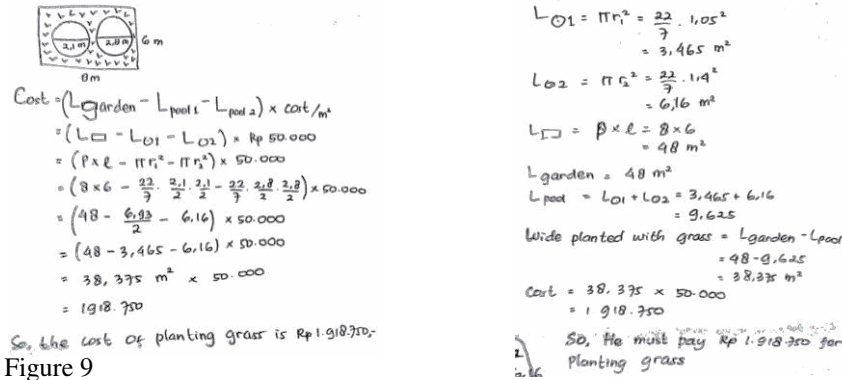 2,1 m
2,8 m
6 m
8m
Cost = (Lgarden - Lpool 1 - Lpool 2) x cost/m²
= (L□ - L○1 - L○2) x Rp 50.000
= (p x l - πr₁² - πr₂²) x 50.000
= (8 x 6 - 22/7 . 2,1/2 . 2,1/2 - 22/7 . 2,8/2 . 2,8/2) x 50.000
= (48 - 6,93/2 - 6,16) x 50.000
= (48 - 3,465 - 6,16) x 50.000
= 38,375 m² x 50.000
= 1918.750
So, the cost of planting grass is Rp 1.918.750,-
Figure 9
L○1 = πr₁² = 22/7 . 1,05²
= 3,465 m²
L○2 = πr₂² = 22/7 . 1,4²
= 6,16 m²
L□ = p x l = 8 x 6
= 48 m²
L garden = 48 m²
L pool = L○1 + L○2 = 3,465 + 6,16
= 9,625
Wide planted with grass = Lgarden - Lpool
= 48 - 9,625
= 38,375 m²
Cost = 38.375 x 50.000
= 1 918.750
So, He must pay Rp 1.918.750 for
Planting grass